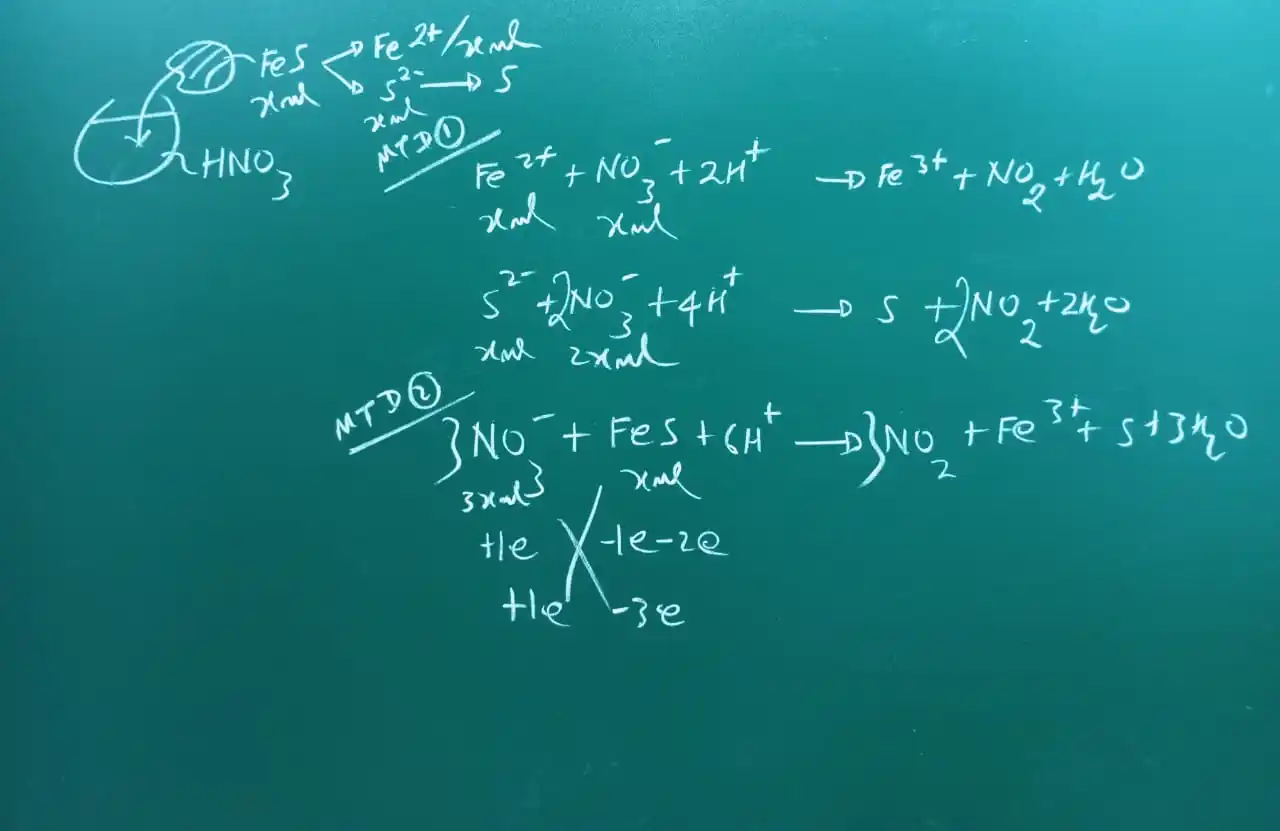 FeS → Fe²⁺/x ml
x ml → S²⁻ → S
x ml
HNO₃
MTD ①
Fe²⁺ + NO₃⁻ + 2H⁺ → Fe³⁺ + NO₂ + H₂O
x ml x ml
S²⁻ + 2NO₃⁻ + 4H⁺ → S + 2NO₂ + 2H₂O
x ml 2x ml
MTD ②
3NO₃⁻ + FeS + 6H⁺ → 3NO₂ + Fe³⁺ + S + 3H₂O
3x ml x ml
+1e -1e-2e
+1e -3e